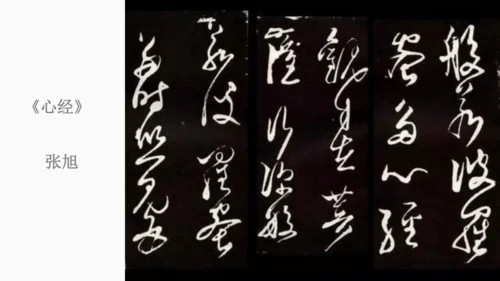 《心经》
张旭
般若波羅
蜜多心經
觀自在菩
薩行深般
若波羅蜜
多時照見五